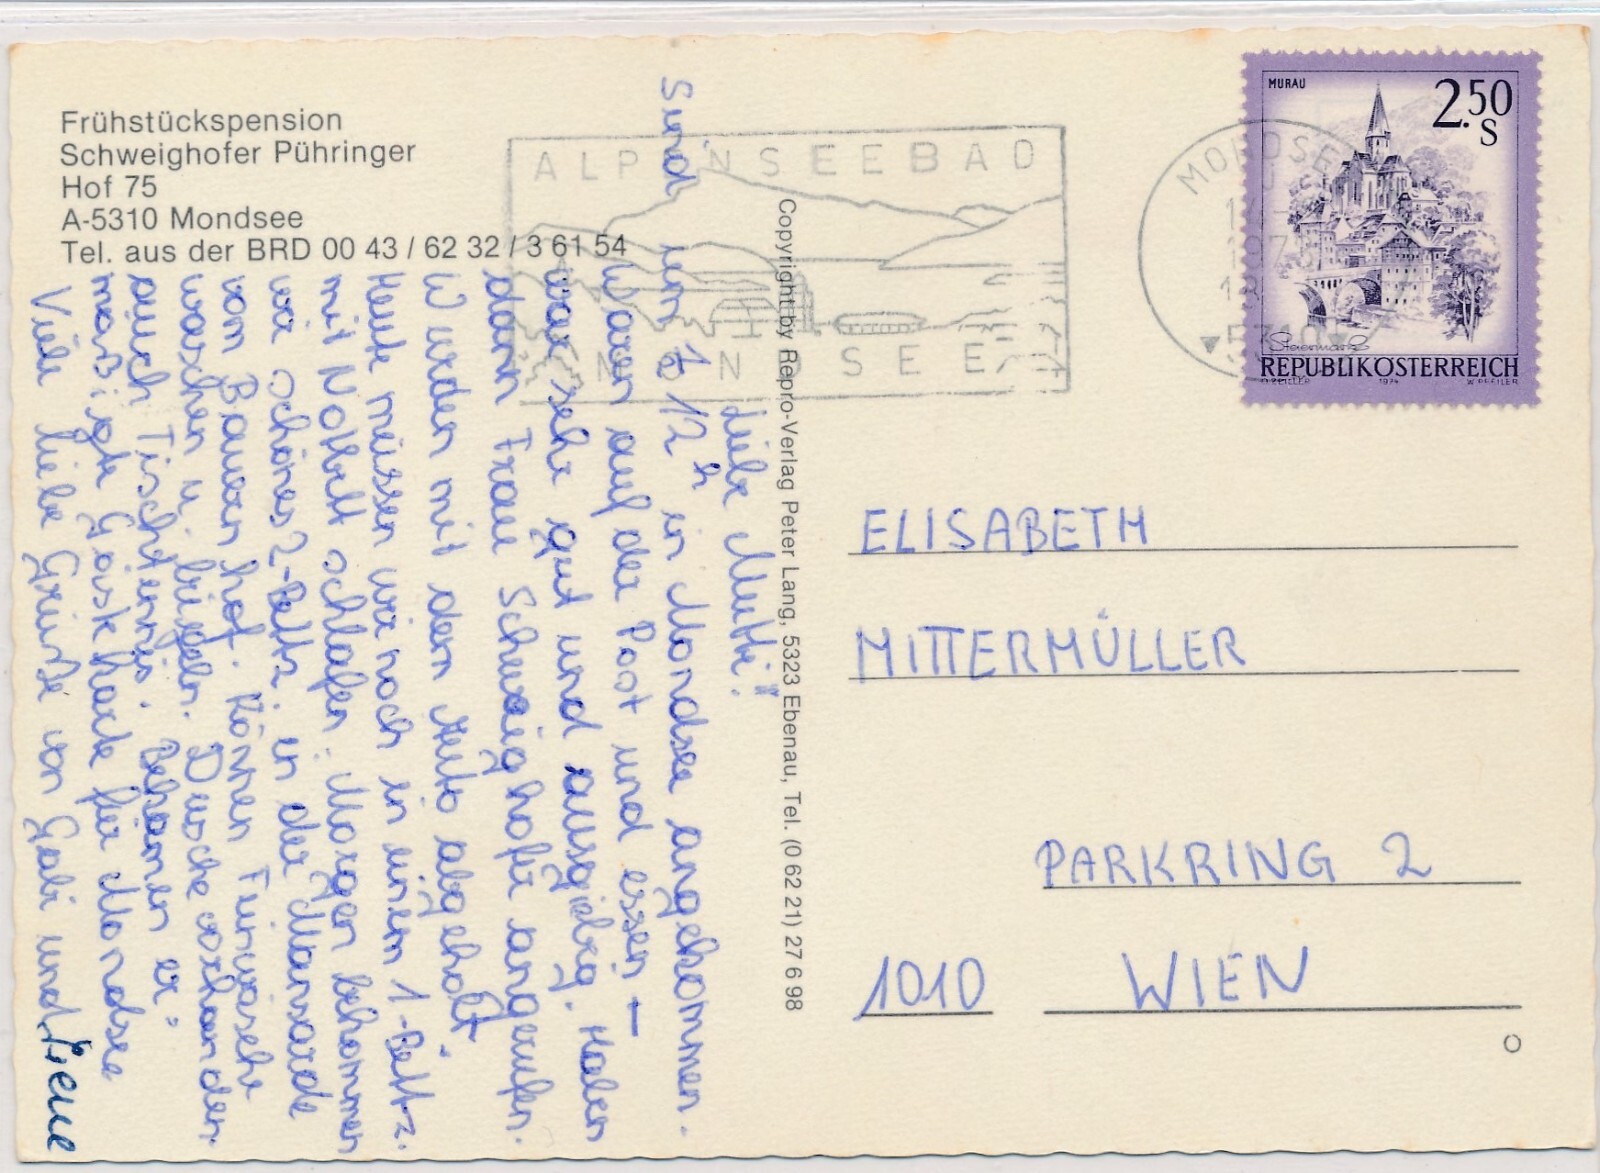 Frühstückspension
Schweighofer Pühringer
Hof 75
A-5310 Mondsee
Tel. aus der BRD 00 43 / 62 32 / 3 61 54
ALPENSEEBAD
MONDSEE
MONDSEE
5310
MURAU
2.50
S
Steiermark
REPUBLIK ÖSTERREICH
O. ZEILLER 1974 W. PFEILER
Liebe Mutti!
Sind um ½ 12h in Mondsee angekommen.
Waren auf der Post und essen –
war sehr gut und ausgiebig. Haben
dann Frau Schweighofer angerufen.
Wurden mit dem Auto abgeholt.
Heute müssen wir noch in einem 1-Bettz.
mit Notbett schlafen; Morgen bekommen
wir schönes 2-Bettz. in der Mansarde
vom Bauernhof. Können Feinwäsche
waschen u. bügeln. Dusche vorhanden.
auch Tischtennis. Bekamen er-
mäßigte Gästekarte für Mondsee
Viele liebe Grüße von Gabi und
Copyright by Repro-Verlag Peter Lang, 5323 Ebenau, Tel. (0 62 21) 27 6 98
ELISABETH
MITTERMÜLLER
PARKRING 2
1010 WIEN